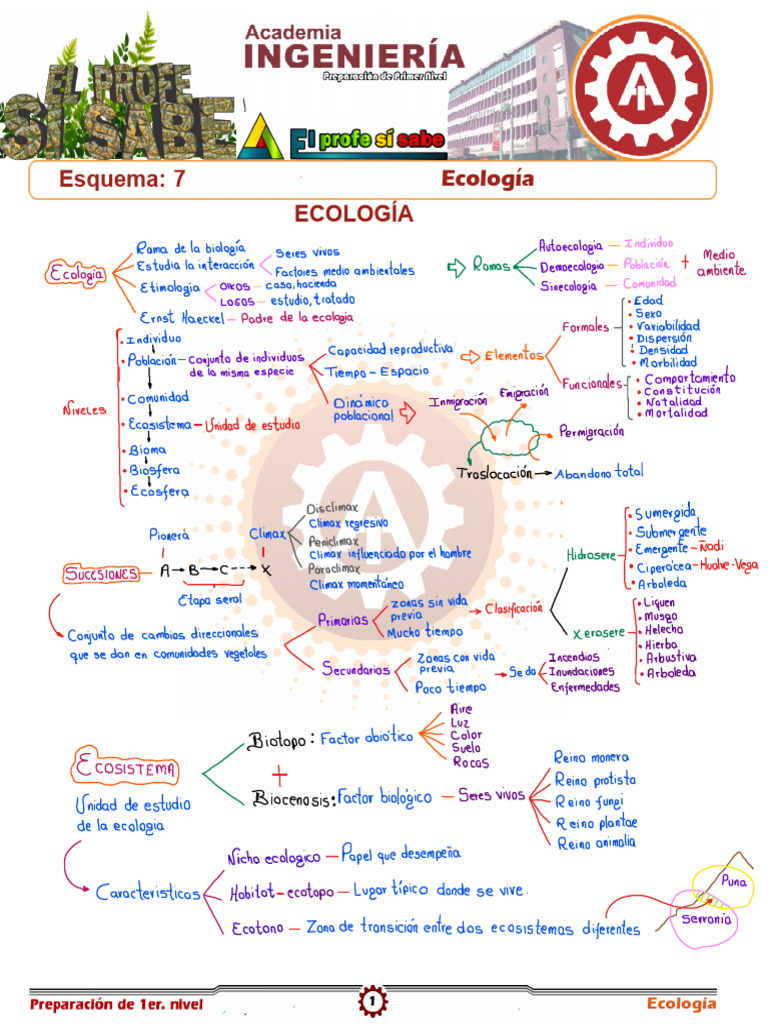 Academia
INGENIERÍA
Preparación de Primer Nivel
EL PROFE
SÍ SABE
El profe sí sabe
Esquema: 7
Ecología
ECOLOGÍA
Ecología
Rama de la biología
Estudia la interacción
Seres vivos
Factores medio ambientales
Etimología
OIKOS — casa, hacienda
LOGOS — estudio, tratado
Ernst Haeckel — Padre de la ecología
Ramas
Autoecologia — Individuo
Demoecologia — Población
Sinecologia — Comunidad
+ Medio
ambiente
Niveles
Individuo
Población — Conjunto de individuos
de la misma especie
Comunidad
Ecosistema — Unidad de estudio
Bioma
Biosfera
Ecosfera
Capacidad reproductiva
Tiempo - Espacio
Dinámica
poblacional
Elementos
Formales
Edad
Sexo
Variabilidad
Dispersión
Densidad
Morbilidad
Funcionales
Comportamiento
Constitución
Natalidad
Mortalidad
Inmigración
Emigración
Permigración
Traslocación → Abandono total
Sucesiones
Pionera
A → B → C → X
Etapa seral
Climax
Disclimax
Climax regresivo
Periclimax
Climax influenciado por el hombre
Paraclimax
Climax momentáneo
Conjunto de cambios direccionales
que se dan en comunidades vegetales
Primarias
Zonas sin vida
previa
Mucho tiempo
Clasificación
Hidrosere
Sumergida
Submergente
Emergente — Ñadi
Ciperacea — Hualve-Vega
Arboleda
Xerosere
Liquen
Musgo
Helecho
Hierba
Arbustiva
Arboleda
Secundarias
Zonas con vida
previa
Poco tiempo
Se da
Incendios
Inundaciones
Enfermedades
Ecosistema
Unidad de estudio
de la ecologia
Biotopo : Factor abiótico
Aire
Luz
Calor
Suelo
Rocas
+
Biocenosis : Factor biológico — Seres vivos
Reino monera
Reino protista
Reino fungi
Reino plantae
Reino animalia
Caracteristicas
Nicho ecologico — Papel que desempeña
Habitat - ecotopo — Lugar típico donde se vive.
Ecotono — Zona de transición entre dos ecosistemas diferentes
Puna
Serrania
Preparación de 1er. nivel
1
Ecología